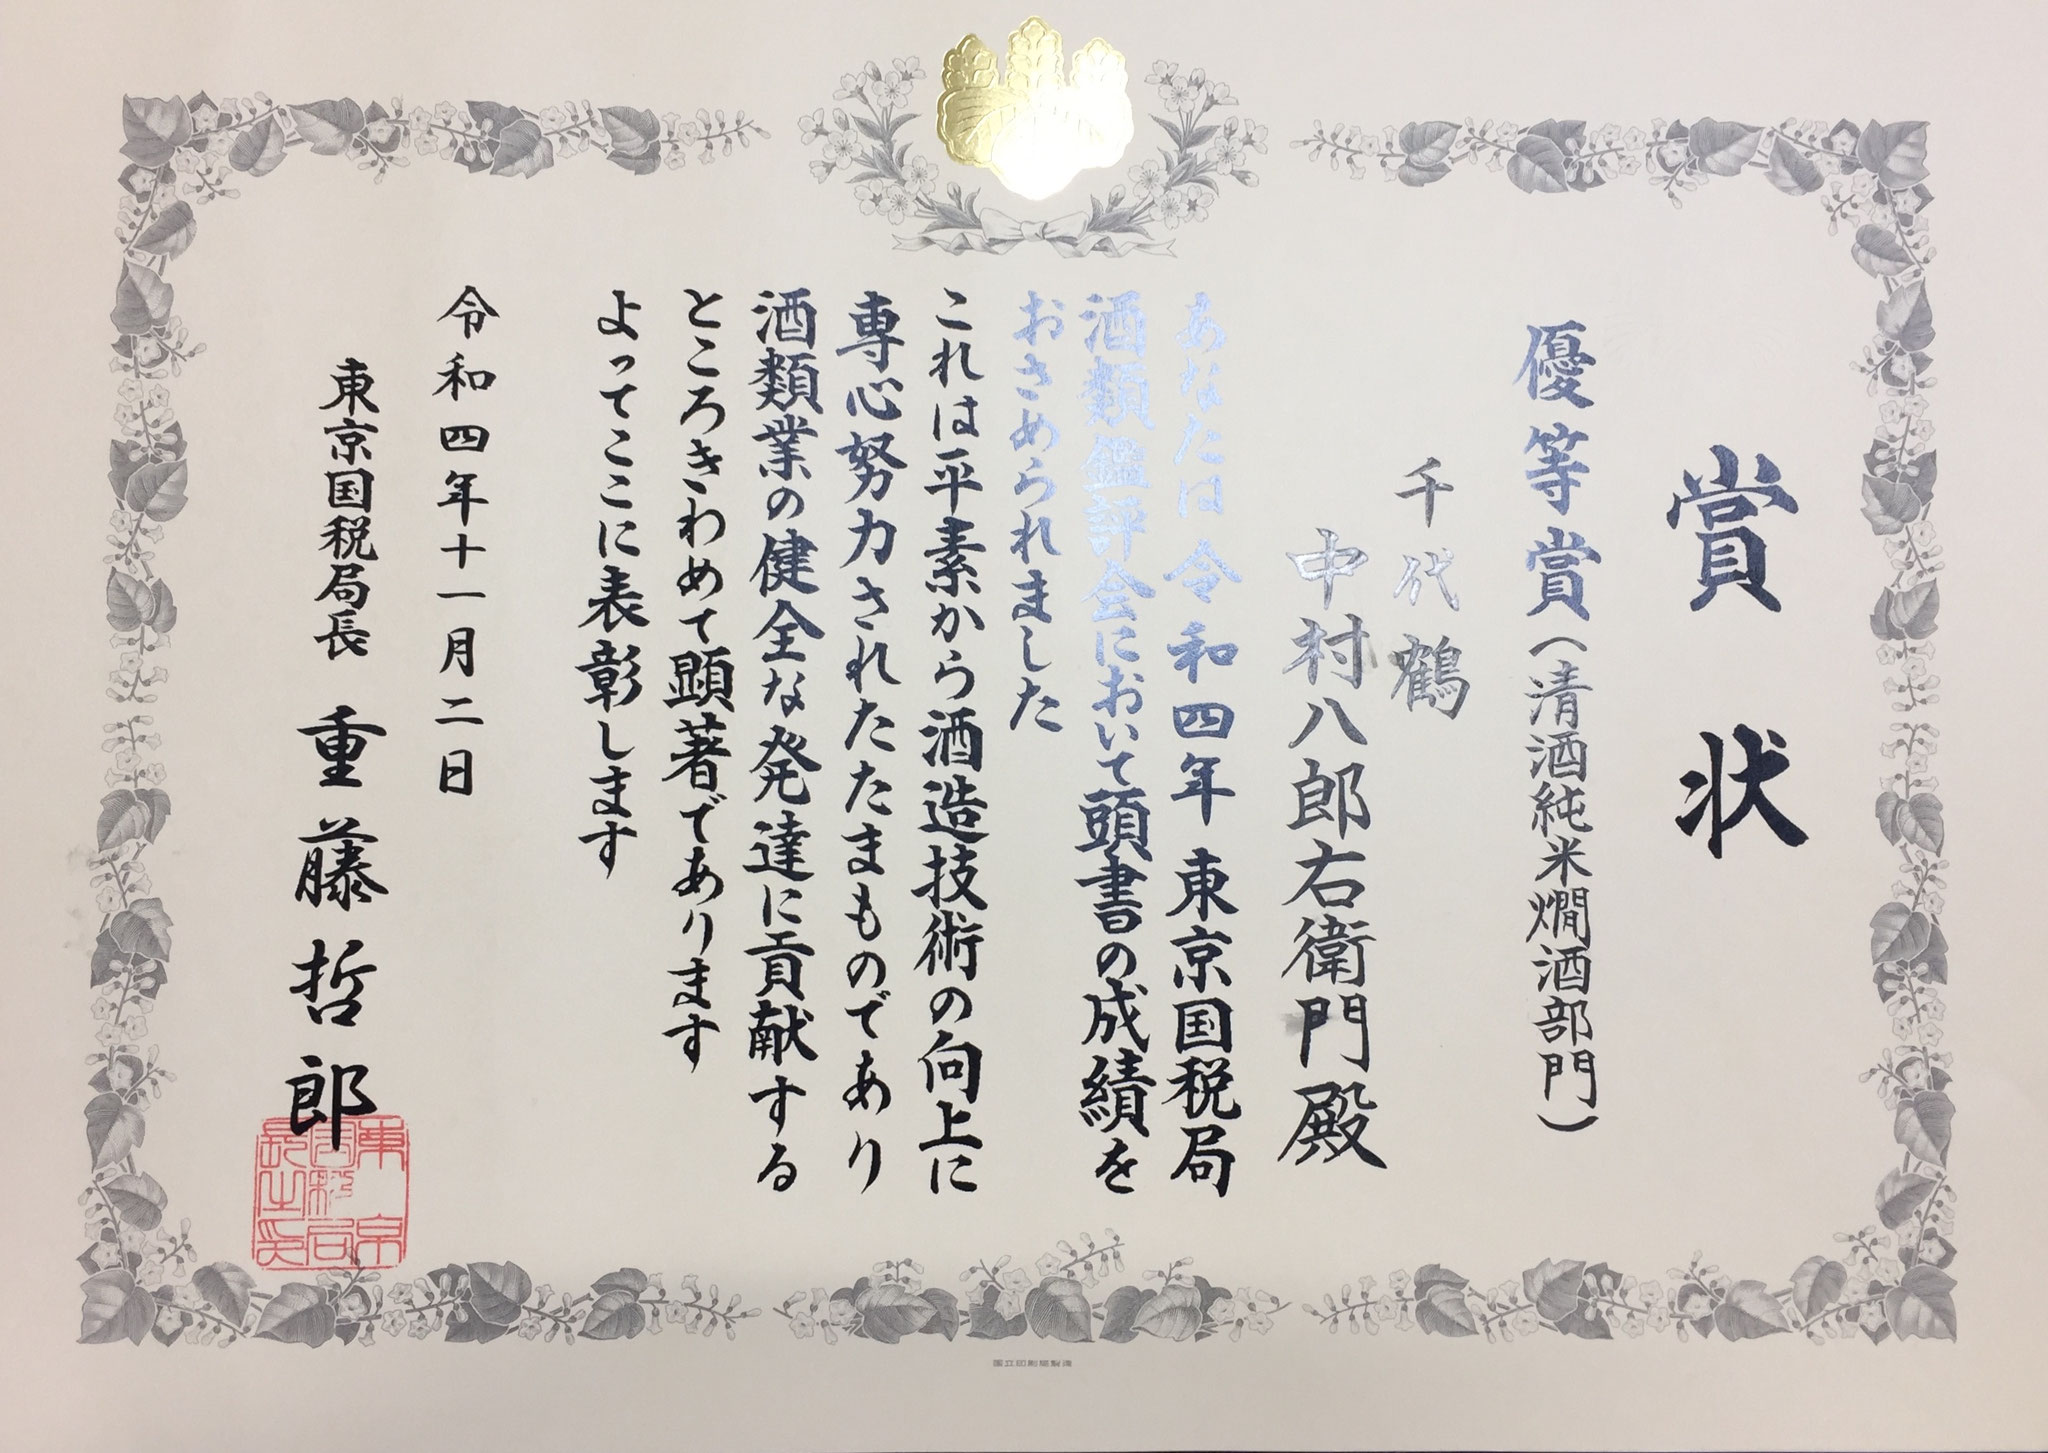 賞状
優等賞(清酒純米燗酒部門)
千代鶴
中村八郎右衛門殿
あなたは令和四年東京国税局
酒類鑑評会において頭書の成績を
おさめられました
これは平素から酒造技術の向上に
専心努力されたたまものであり
酒類業の健全な発達に貢献する
ところきわめて顕著であります
よってここに表彰します
令和四年十一月二日
東京国税局長 重藤哲郎
東京国税局長之印
国立印刷局製造